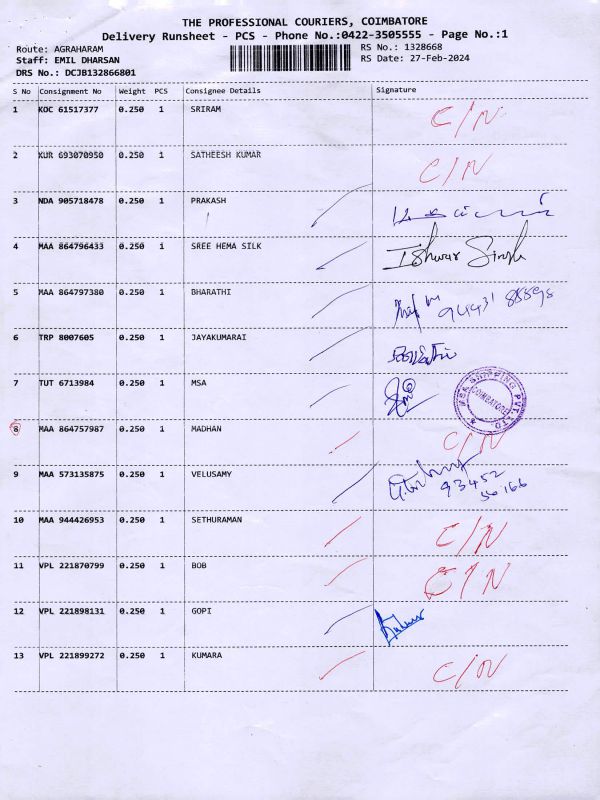 THE PROFESSIONAL COURIERS, COIMBATORE
Delivery Runsheet - PCS - Phone No.:0422-3505555 - Page No.:1
Route: AGRAHARAM RS No.: 1328668
Staff: EMIL DHARSAN RS Date: 27-Feb-2024
DRS No.: DCJB132866801
S No Consignment No Weight PCS Consignee Details Signature
1 KOC 61517377 0.250 1 SRIRAM C/N
2 KUR 693070950 0.250 1 SATHEESH KUMAR C/N
3 NDA 905718478 0.250 1 PRAKASH
4 MAA 864796433 0.250 1 SREE HEMA SILK Ishwar Singh
5 MAA 864797380 0.250 1 BHARATHI
6 TRP 8007605 0.250 1 JAYAKUMARAI
7 TUT 6713984 0.250 1 MSA
MSA SHIPPING PVT. LTD. COIMBATORE
8 MAA 864757987 0.250 1 MADHAN C/N
9 MAA 573135875 0.250 1 VELUSAMY 93452
50166
10 MAA 944426953 0.250 1 SETHURAMAN C/N
11 VPL 221870799 0.250 1 BOB C/N
12 VPL 221898131 0.250 1 GOPI
13 VPL 221899272 0.250 1 KUMARA C/N